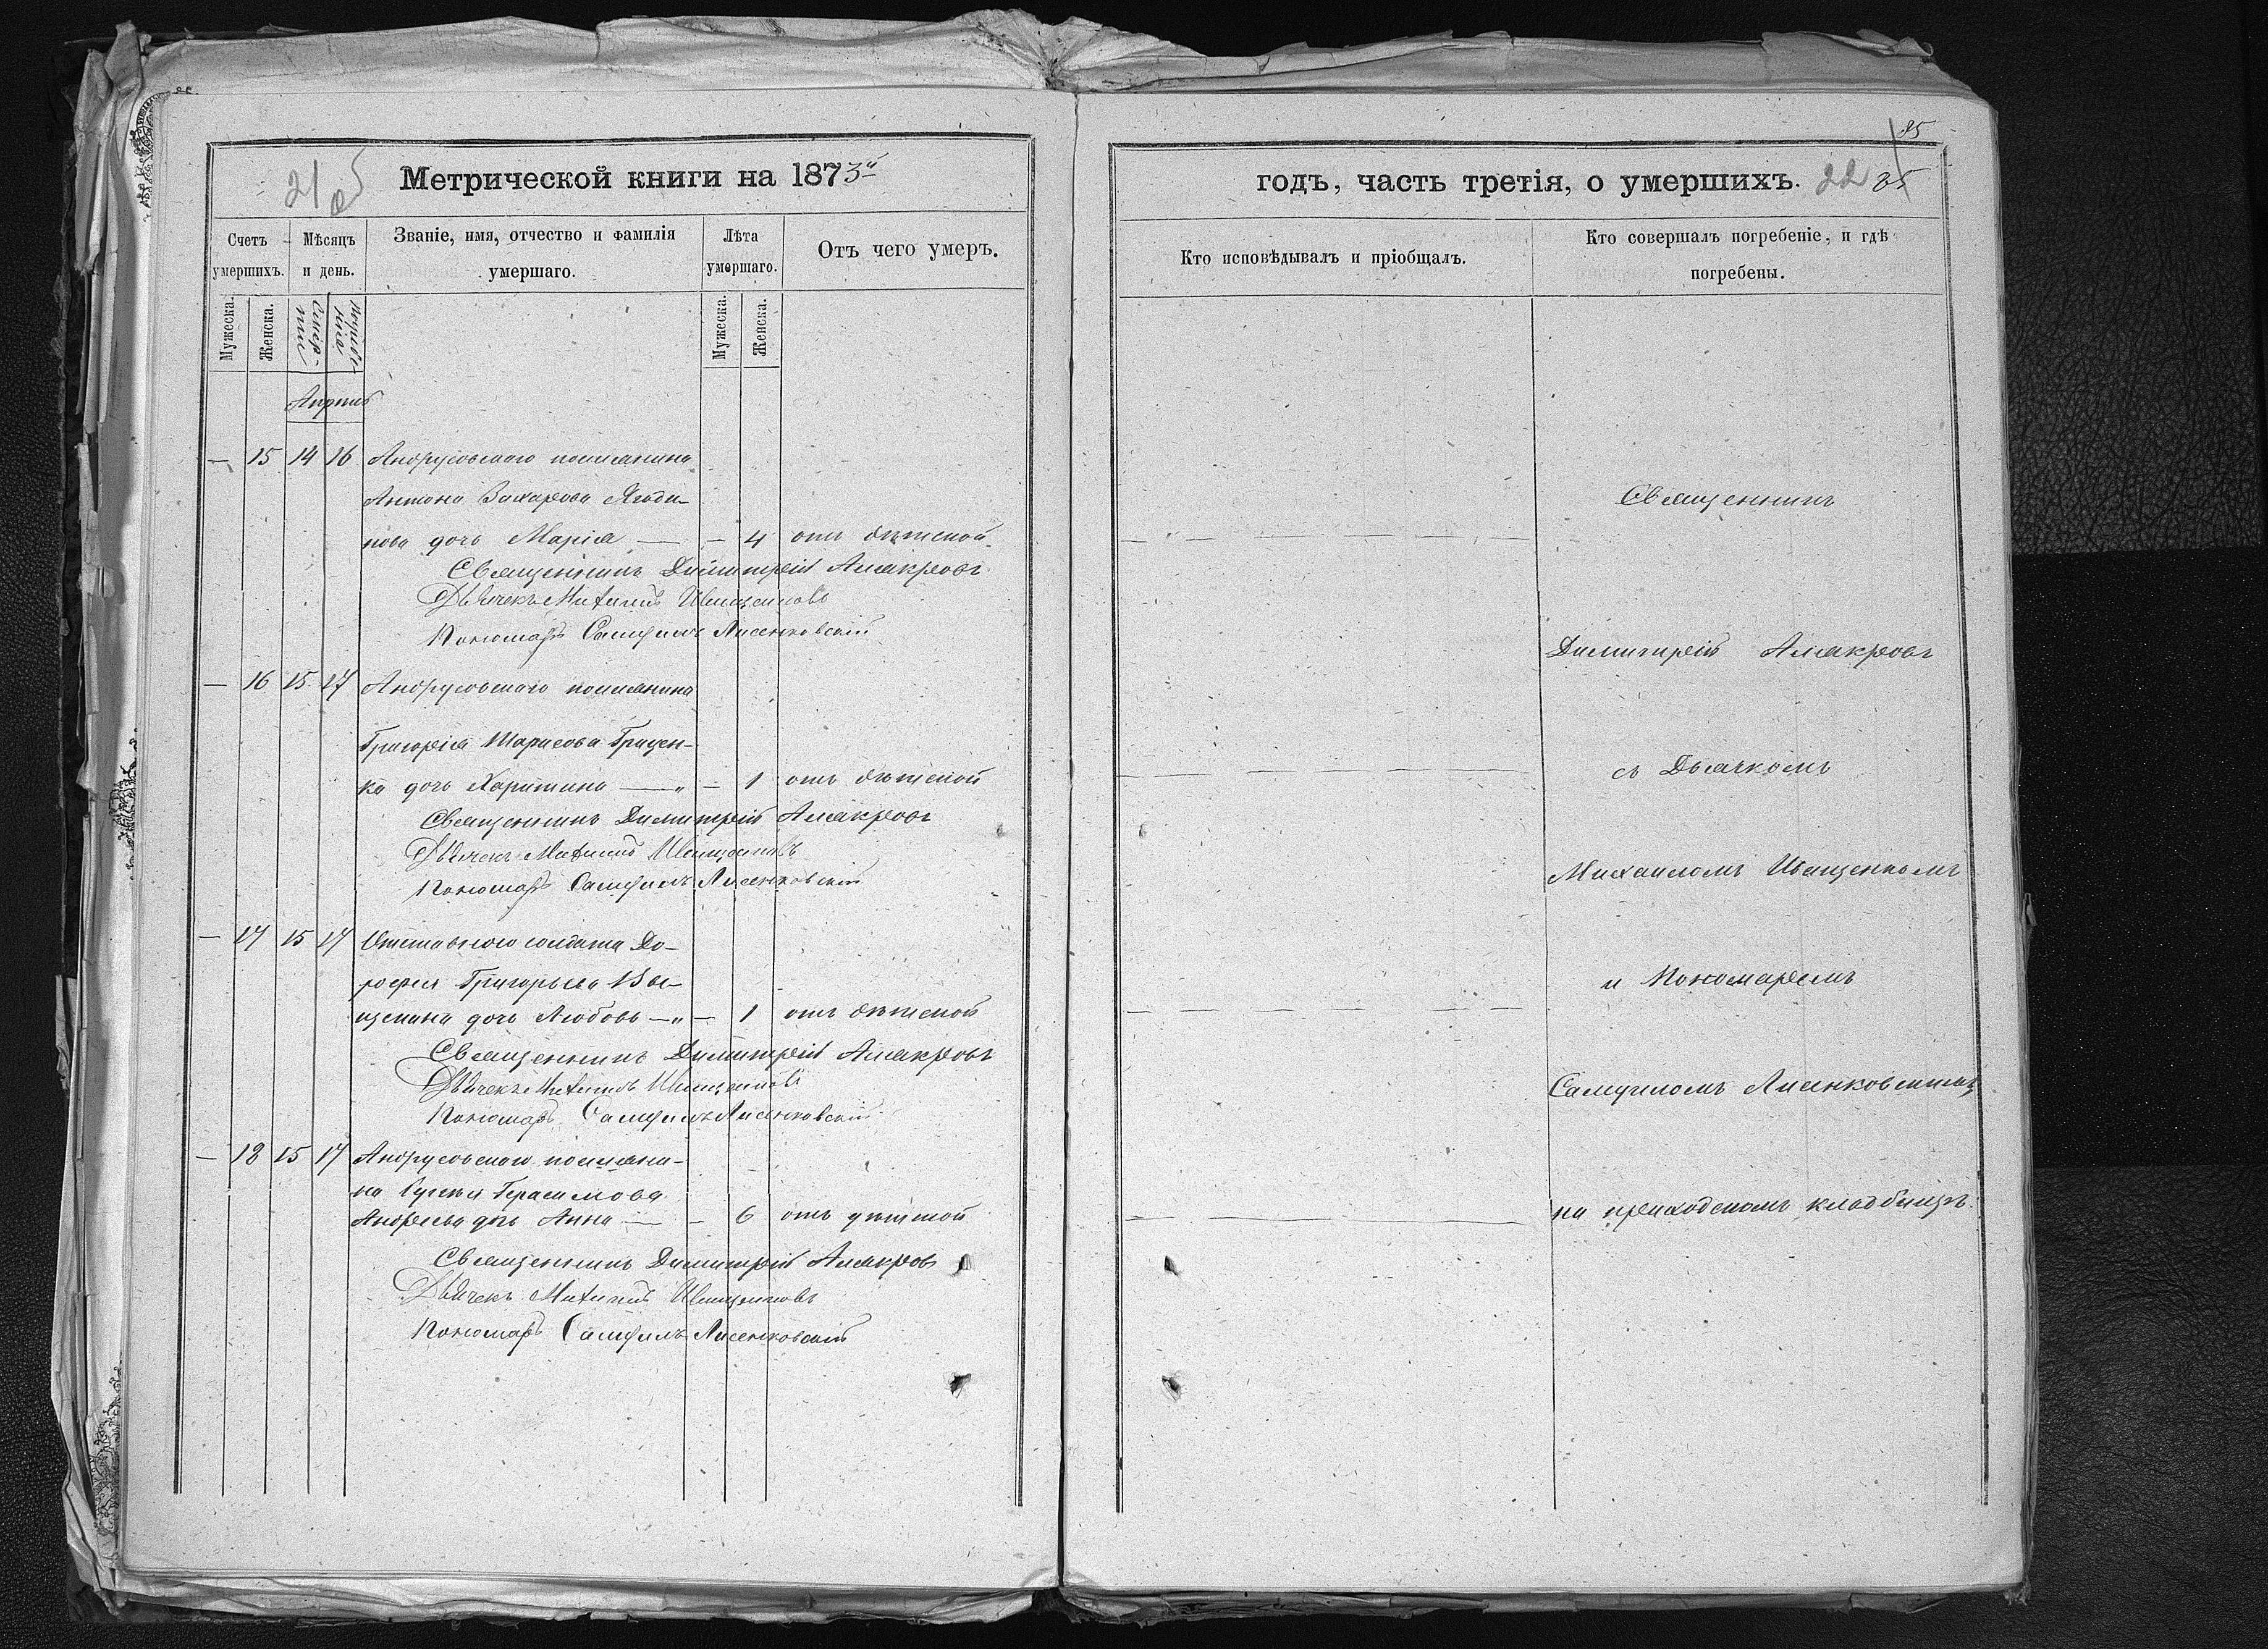 21
Метрической книги на 1873й
Счетъ умершихъ.
Мѣсяцъ и день.
Званіе, имя, отчество и фамилія умершаго.
Лѣта умершаго.
Отъ чего умеръ.
Мужеска.
Женска.
Смерти
Погребенія
Мужеска.
Женска.
Апрель
— 15 14 16 Андрусовскаго поселянина
Антона Захарова Ягоди-
нова дочь Марія — — 4 отъ дѣтской
Священникъ Димитрій
Дьячекъ Михаилъ Иващенковъ
Пономарь Самуилъ Лисенковскій
— 16 15 17 Андрусовскаго поселянина
Григорія Тарасова Грицен-
ка дочь Харитина — " — 1 отъ дѣтской
Священникъ Димитрій
Дьячекъ Михаилъ Иващенковъ
Пономарь Самуилъ Лисенковскій
— 17 15 17 Отставного солдата До-
рофея Григорьева
дочь Любовь — " — 1 отъ дѣтской
Священникъ Димитрій
Дьячекъ Михаилъ Иващенковъ
Пономарь Самуилъ Лисенковскій
— 18 15 17 Андрусовскаго поселяни-
на Герасимова
Андреева дочь Анна — — 6 отъ дѣтской
Священникъ Димитрій
Дьячекъ Михаилъ Иващенковъ
Пономарь Самуилъ Лисенковскій
85
годъ, часть третія, о умершихъ. 22 85
Кто исповѣдывалъ и пріобщалъ.
Кто совершалъ погребеніе, и гдѣ погребены.
Священникъ
Димитрій
съ Дьячкомъ
Михаиломъ Иващенкомъ
и Пономаремъ
Самуиломъ Лисенковскимъ
на приходскомъ кладбищѣ.